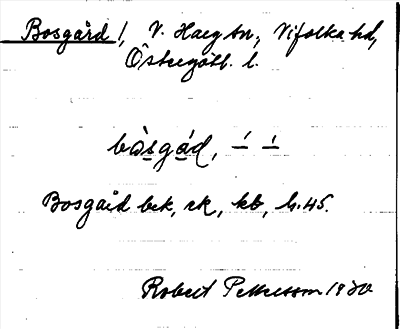 Bosgård!, V. Haeg sn, Vifolka hd,
Östergötl. l.
bòsgád, ´ ´
Bosgård bek, rk, kb, h. 45.
Robert Pettersson 1920